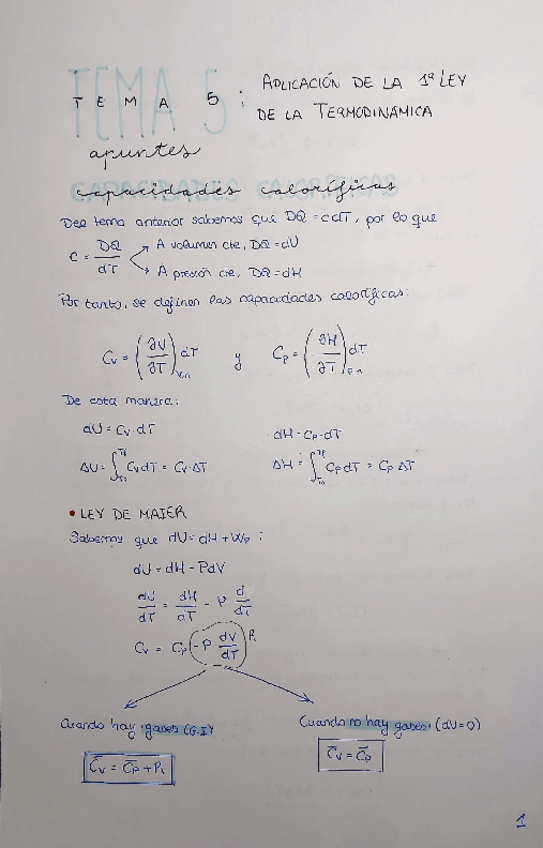 TEMA 5: APLICACIÓN DE LA 1ª LEY
DE LA TERMODINÁMICA
apuntes
capacidades caloríficas
Del tema anterior sabemos que DQ = cdT, por lo que
C = DQ/dT → A volumen cte, DQ = dU
→ A presión cte, DQ = dH
Por tanto, se definen las capacidades caloríficas:
Cv = (∂U/∂T)v,n dT y Cp = (∂H/∂T)p,n dT
De esta manera:
dU = Cv·dT dH = Cp·dT
ΔU = ∫ CvdT = Cv·ΔT ΔH = ∫ CpdT = Cp ΔT
• LEY DE MAIER
Sabemos que dU = dH + Wp:
dU = dH - PdV
dU/dT = dH/dT - P d/dT
Cv = Cp - P dV/dT
Cuando hay gases (G.I) Cuando no hay gases (dV=0)
C̄v = C̄p + C̄v = C̄p
1